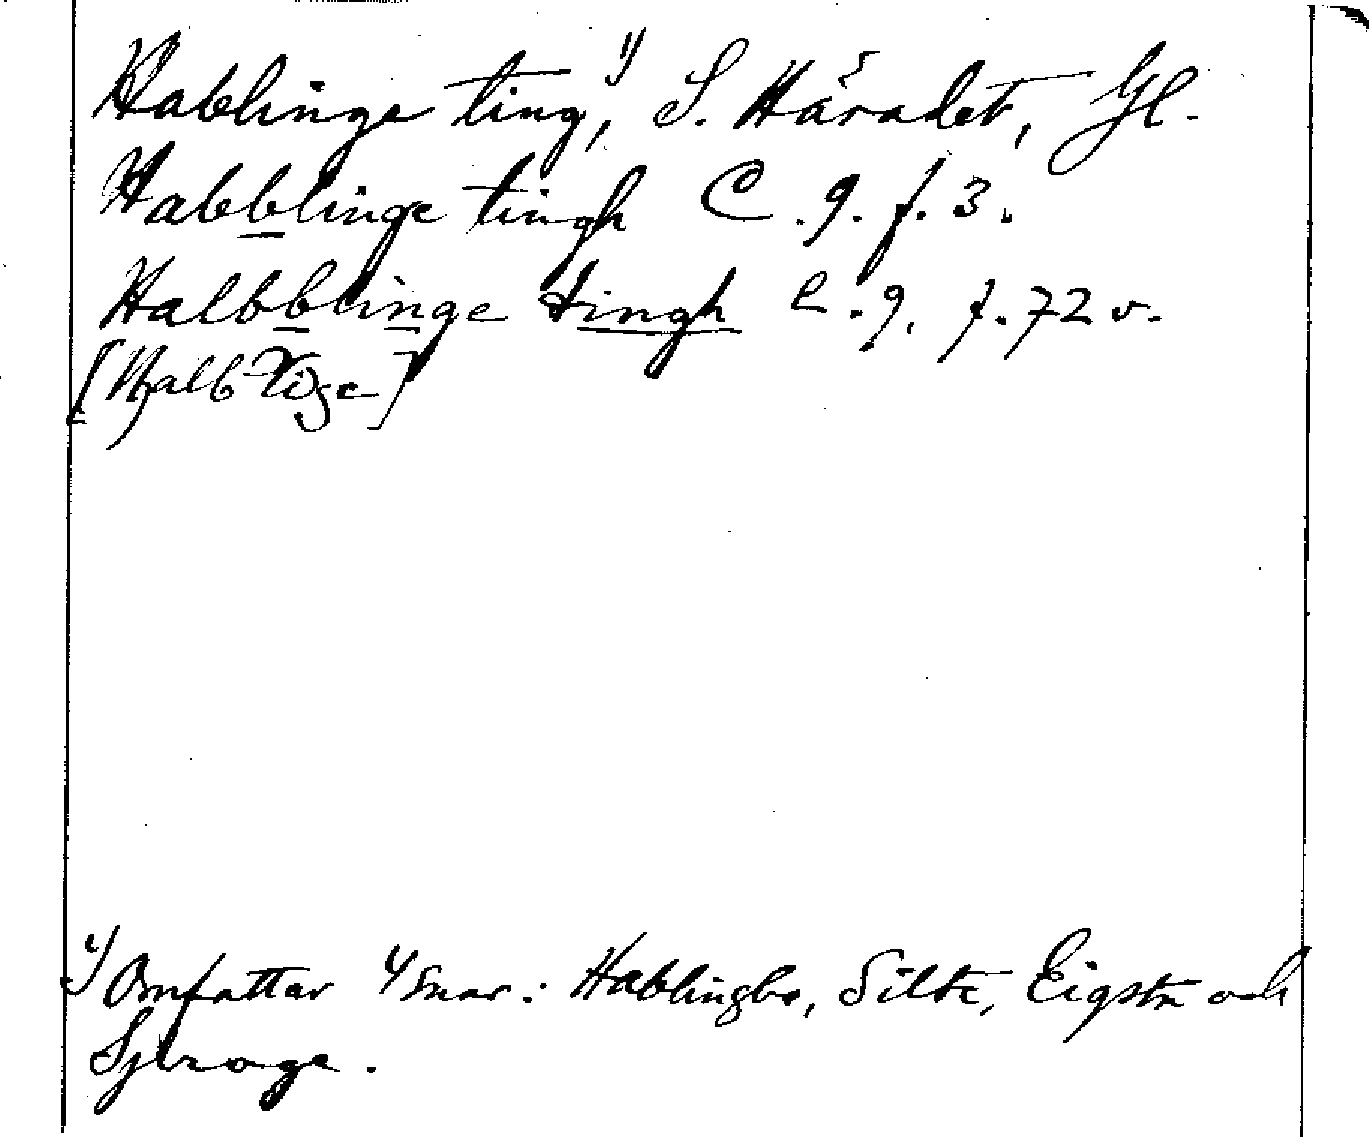 Hablinge ting,¹⁾ S. Häradet, Gl.
Habblinge tingh C. 9. f. 3.
Halbblinge tingh C. 9. f. 72 v.
[Halb
¹⁾ Omfattar 4 snar: Hablingbo, Silte, Eigsta och
Sproge.